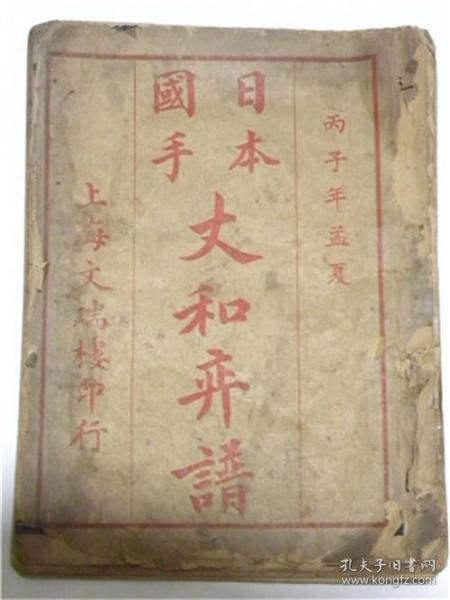 丙子年孟夏
日本
國手
丈和弈譜
上海文瑞樓印行
孔夫子旧书网
www.kongfz.com